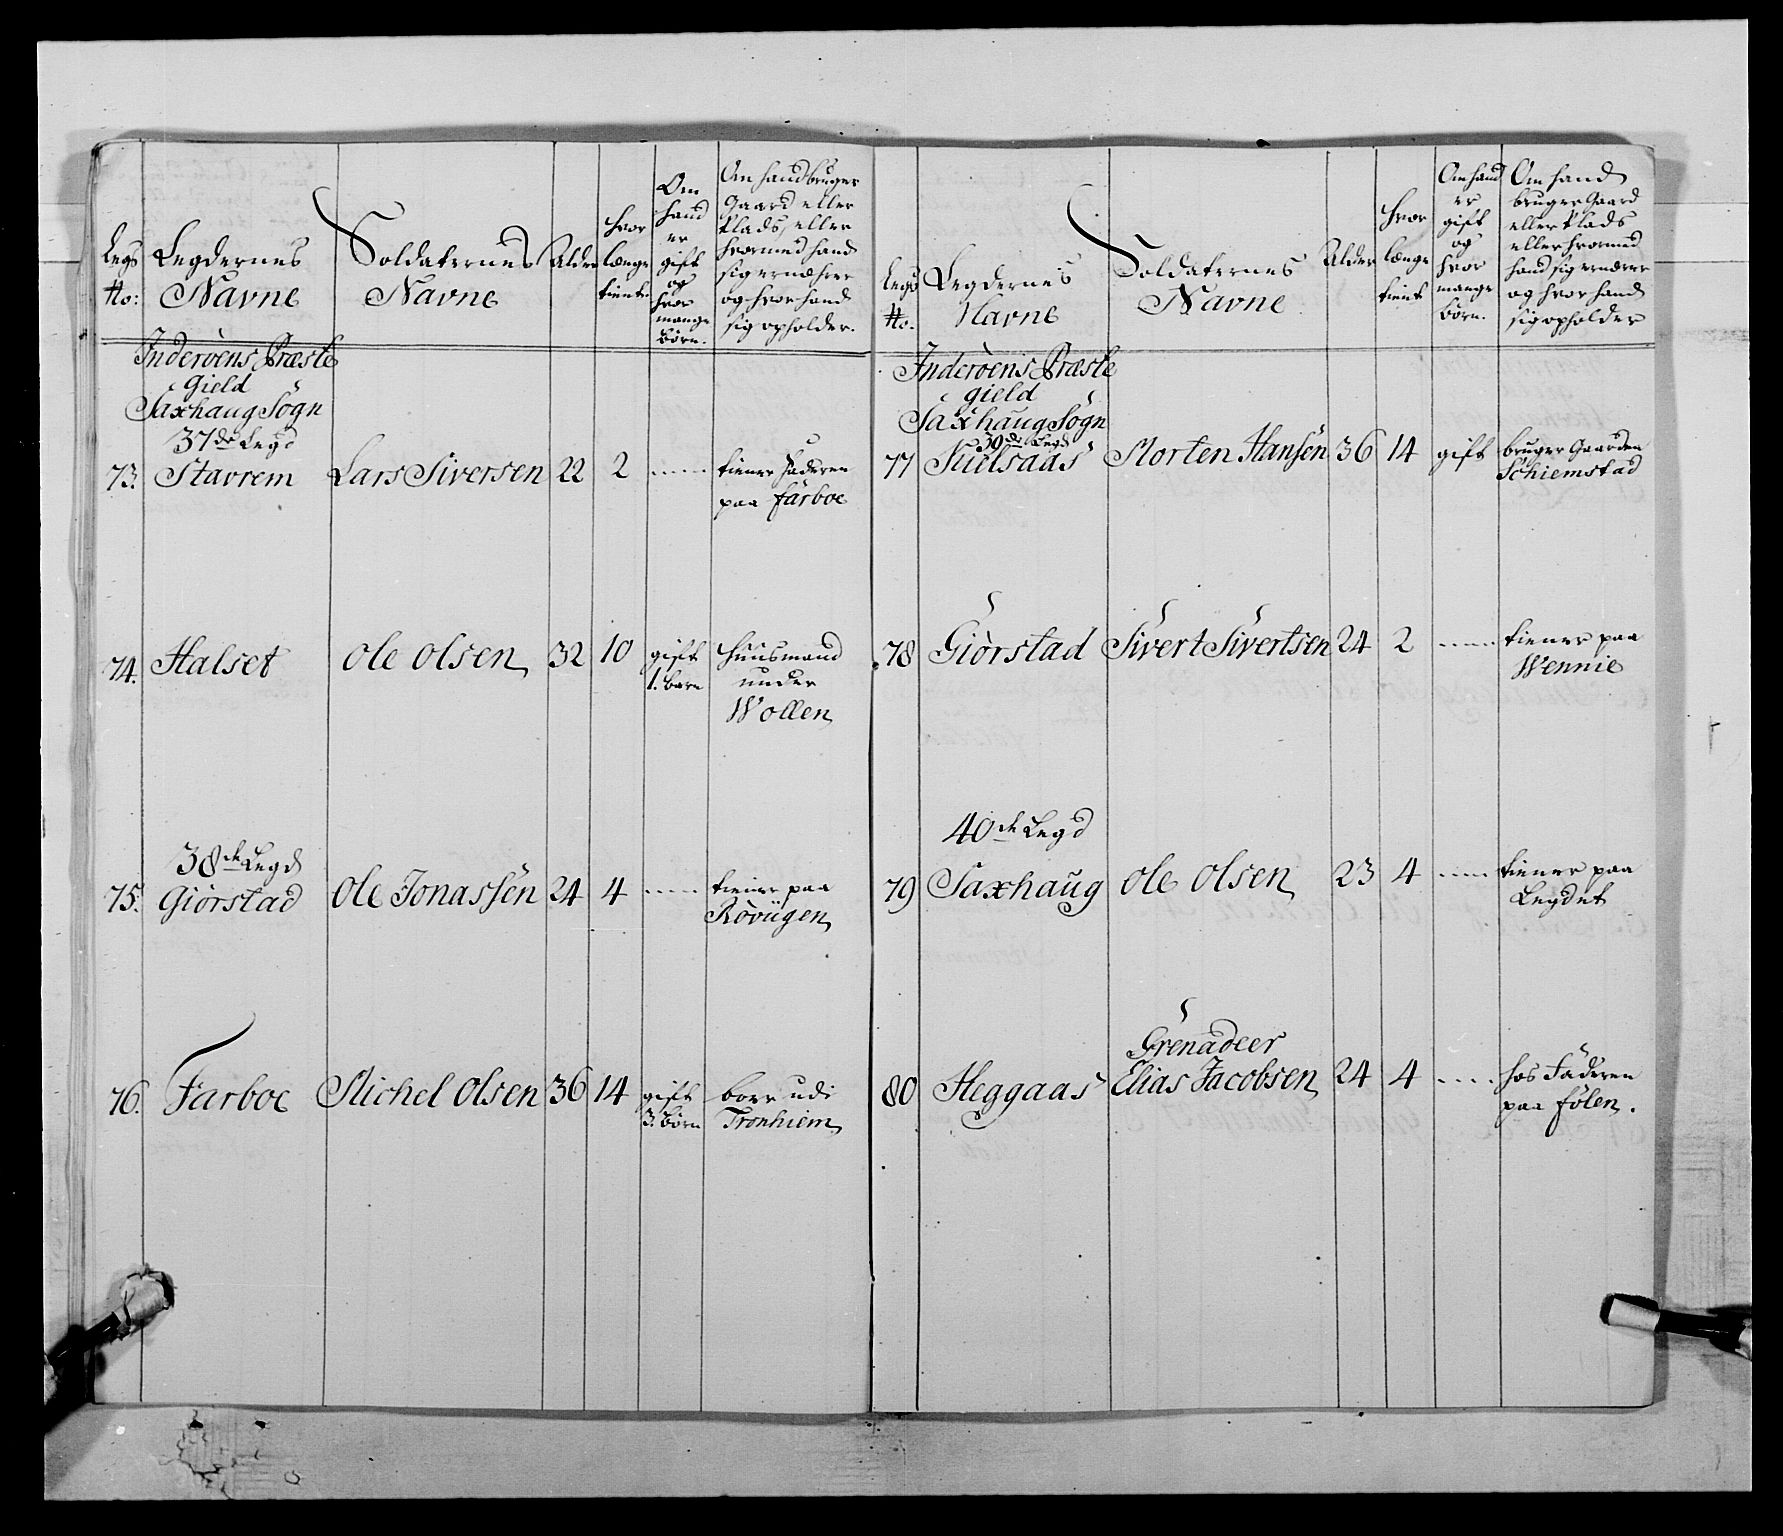 Legs No: Legdernes Navne Soldaternes Navne Alder hvor længe tient. Om hand er gift og hvor mange börn. Om hand bruger Gaard eller Plads, eller hvormed hand sig ernæhrer og hvor hand sig opholder.
Inderöens Præste
Gield
Saxhaug Sogn
37de Legd
73. Stavrem Lars Siversen 22 2 ...... tiener Faderen
paa Farboe
74. Halset Ole Olsen 32 10 gift Huusmand
1. barn under
Wollen
38de Legd
75. Giörstad Ole Jonassen 24 4 ...... tiener paa
Rövügen
76. Farboe Michel Olsen 36 14 gift boer udi
3. börn Tronhiem
Legs No. Legdernes Navne Soldaternes Navne Alder hvor længe tient Om hand er gift og hvor mange börn. Om hand bruger Gaard eller Plads eller hvormed hand sig ernærer og hvor hand sig opholder
Inderöens Præste
gield
Saxhaug Sogn
39de Legd
77 Nielsaas Morten Hansen 36 14 gift bruger Gaarden
Schiemstad
78 Giörstad Sivert Sivertsen 24 2 ...... tiener paa
Wennie
40de Legd
79 Saxhaug Ole Olsen 23 4 ...... tiener paa
Legdet
Grenadeer
80 Heggaas Elias Jacobsen 24 4 .... hos Faderen
paa Folen.